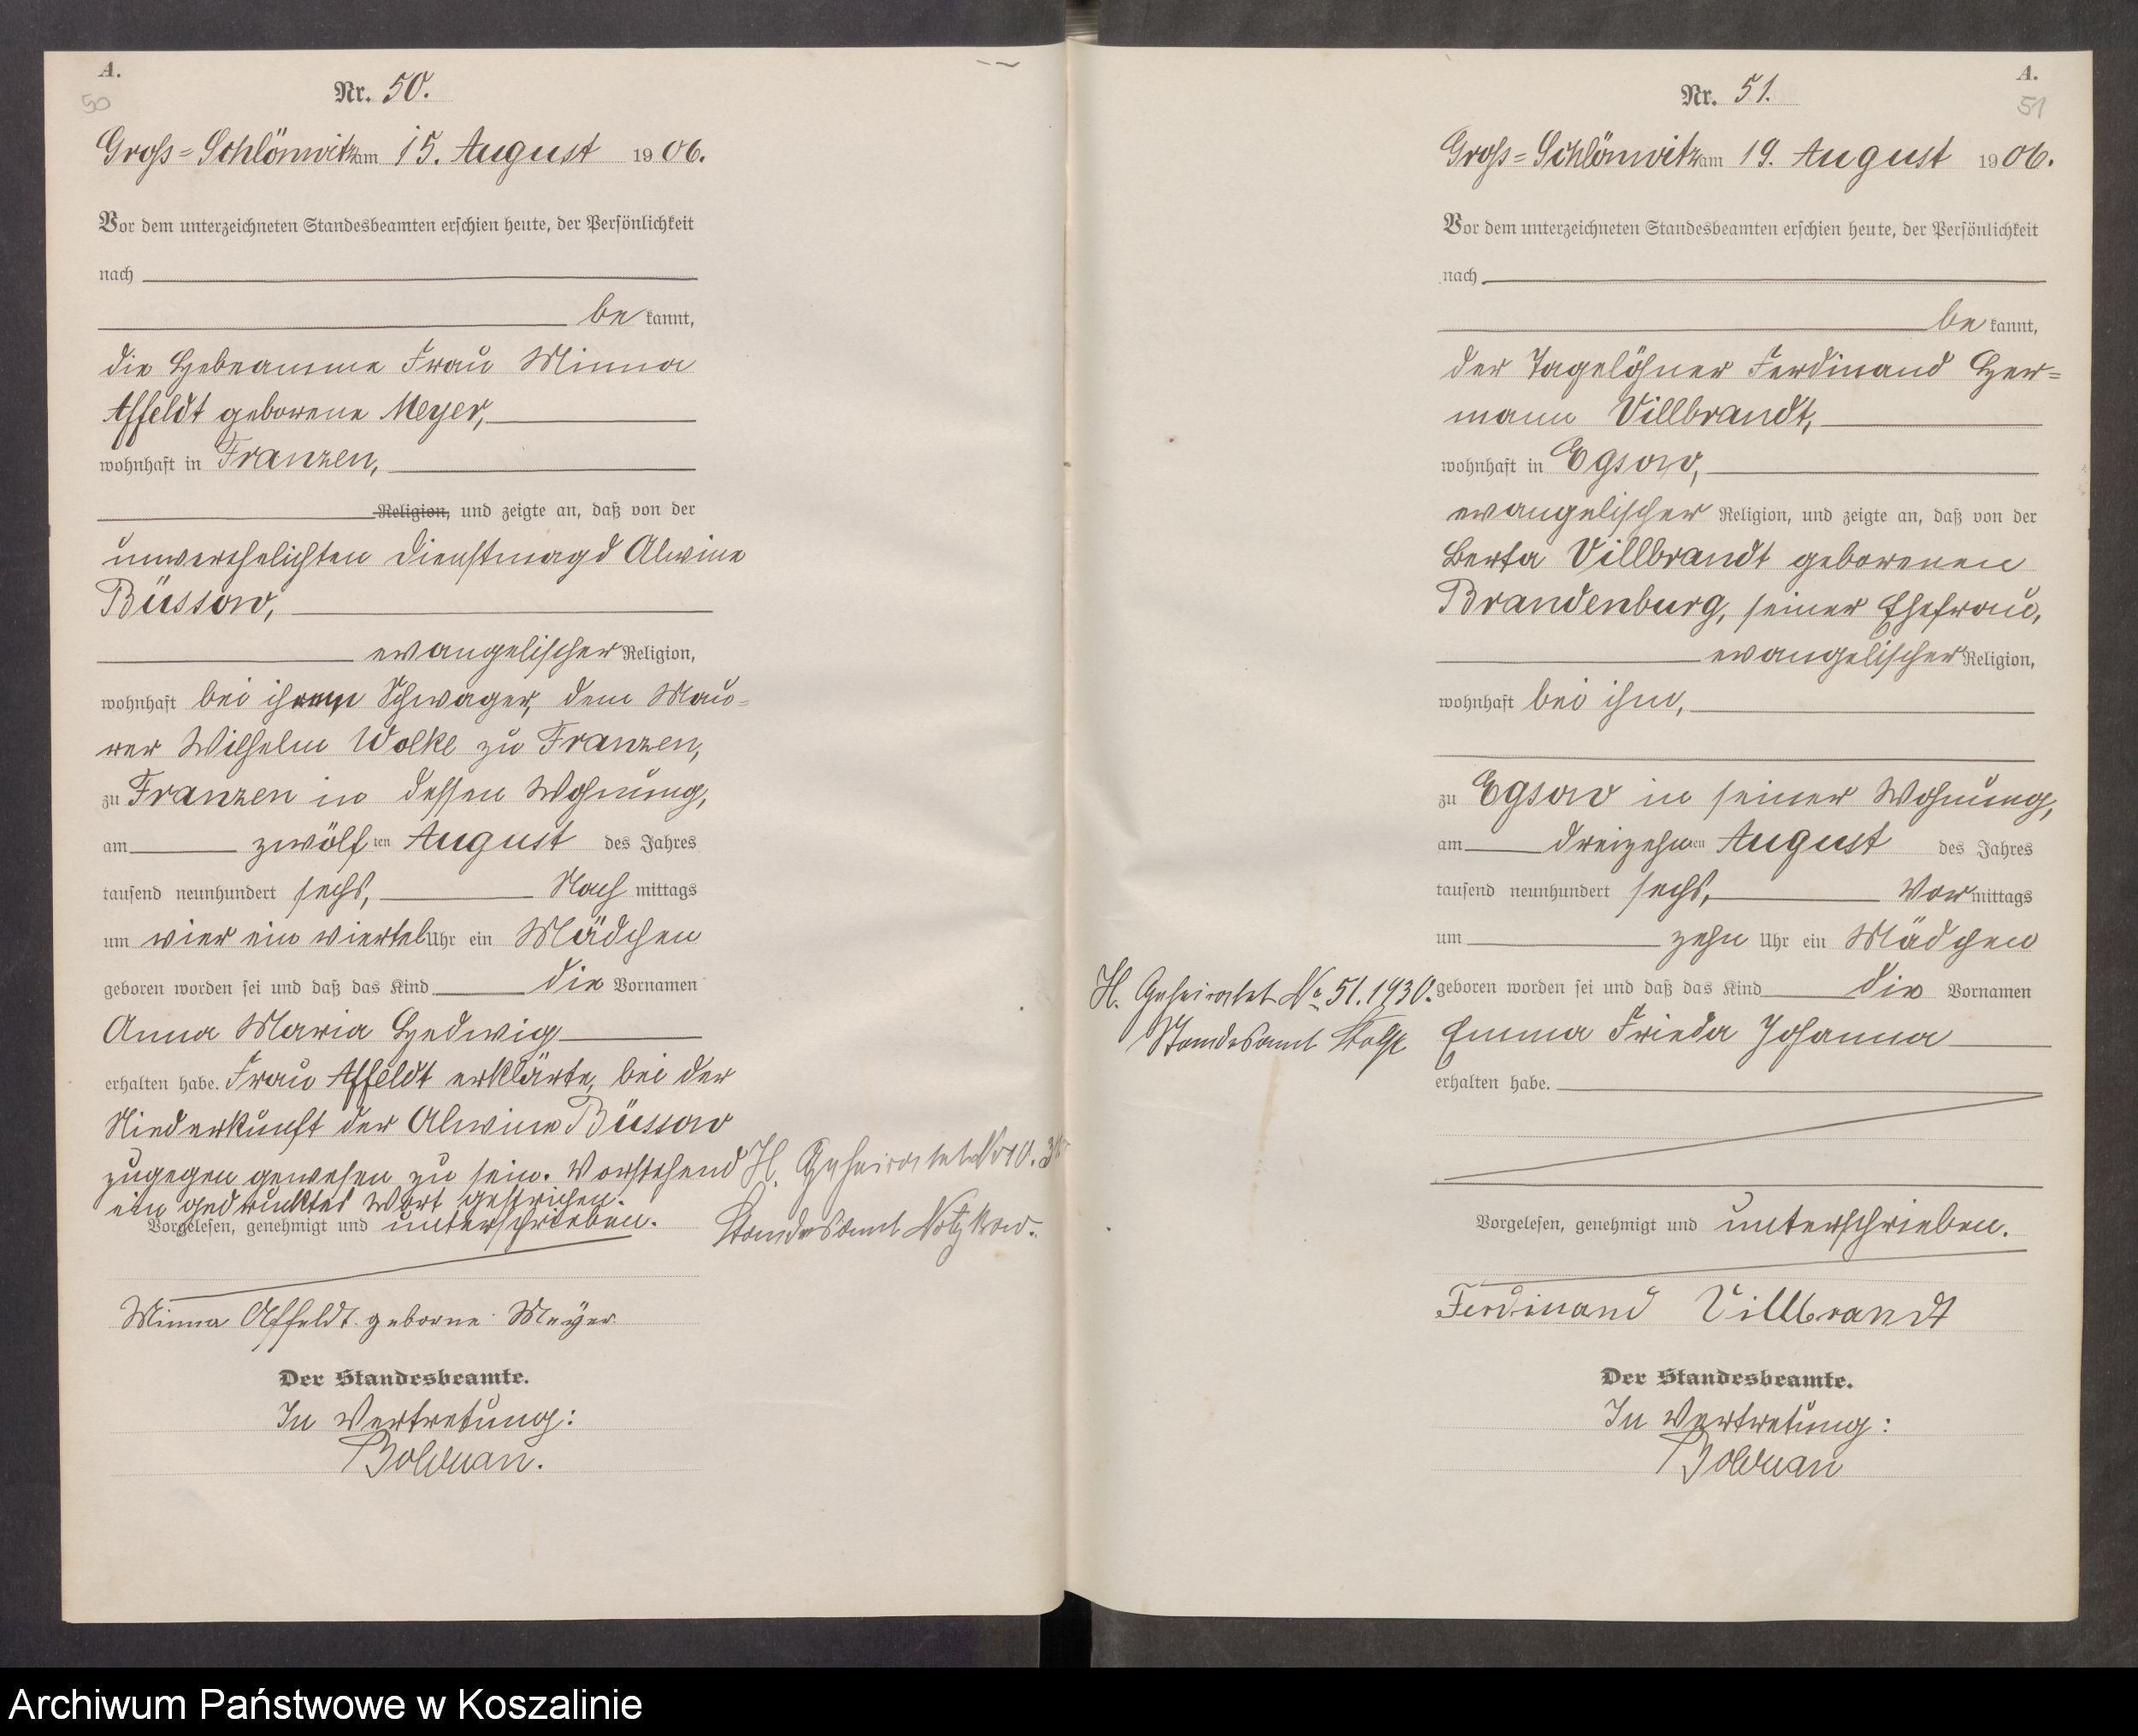 A.
50
Nr. 50.
Groß=Schlönwitz am 15. August 1906.
Vor dem unterzeichneten Standesbeamten erschien heute, der Persönlichkeit
nach
be kannt,
die Hebeamme Frau Minna
Affeldt geborene Meyer,
wohnhaft in Franzen,
Religion, und zeigte an, daß von der
unverehelichten Dienstmagd Alwine
Büssow,
evangelischer Religion,
wohnhaft bei ihrem Schwager, dem Mau=
rer Wilhelm Wolke zu Franzen,
zu Franzen in dessen Wohnung,
am zwölf ten August des Jahres
tausend neunhundert sechs, Nach mittags
um vier ein viertel Uhr ein Mädchen
geboren worden sei und daß das Kind die Vornamen
Anna Maria Hedwig
erhalten habe. Frau Affeldt erklärte, bei der
Niederkunft der Alwine Büssow
zugegen gewesen zu sein. Vorstehend
ein gedrucktes Wort gestrichen.
Vorgelesen, genehmigt und unterschrieben.
H. Geheiratet
Standesamt Notzkow.
Minna Affeldt geborne Meyer
Der Standesbeamte.
In Vertretung:
Bolduan.
A.
51
Nr. 51.
Groß=Schlönwitz am 19. August 1906.
Vor dem unterzeichneten Standesbeamten erschien heute, der Persönlichkeit
nach
be kannt,
der Tagelöhner Ferdinand Her=
mann Villbrandt,
wohnhaft in Egsow,
evangelischer Religion, und zeigte an, daß von der
Berta Villbrandt geborenen
Brandenburg, seiner Ehefrau,
evangelischer Religion,
wohnhaft bei ihm,
zu Egsow in seiner Wohnung,
am dreizehn ten August des Jahres
tausend neunhundert sechs, Vor mittags
um zehn Uhr ein Mädchen
geboren worden sei und daß das Kind die Vornamen
Emma Frieda Johanna
erhalten habe.
H. Geheiratet No 51. 1930.
Standesamt Stolp
Vorgelesen, genehmigt und unterschrieben.
Ferdinand Villbrandt
Der Standesbeamte.
In Vertretung:
Bolduan
Archiwum Państwowe w Koszalinie